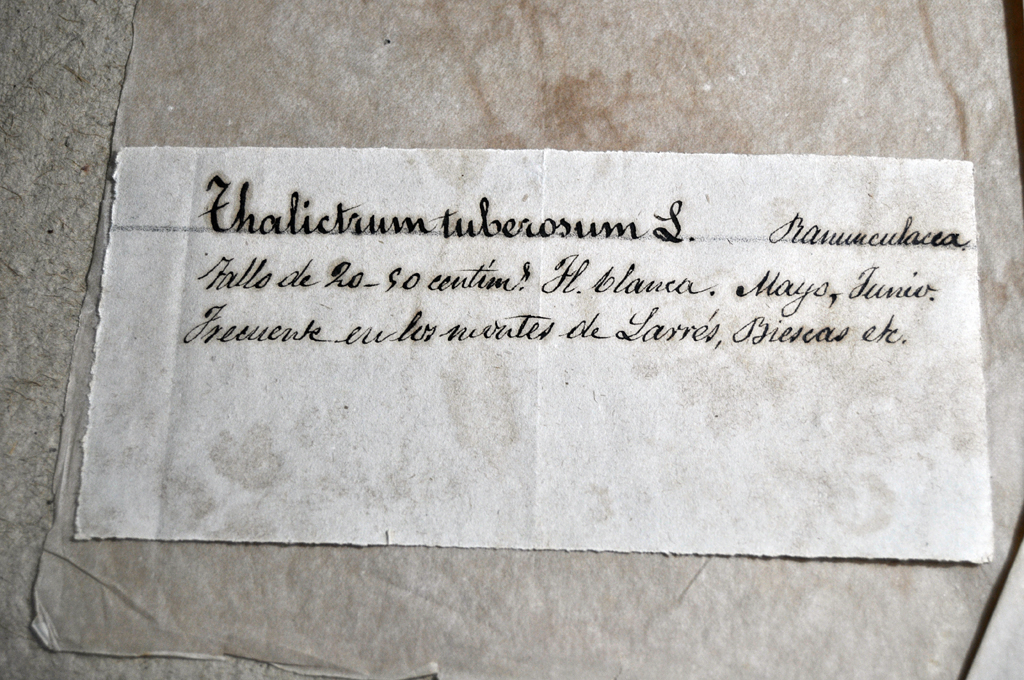 Thalictrum tuberosum L. Ranunculacea.
Tallo de 20-50 centím.s Fl. blanca. Mayo, Junio.
Frecuente en los montes de Larrés, Biescas etc.